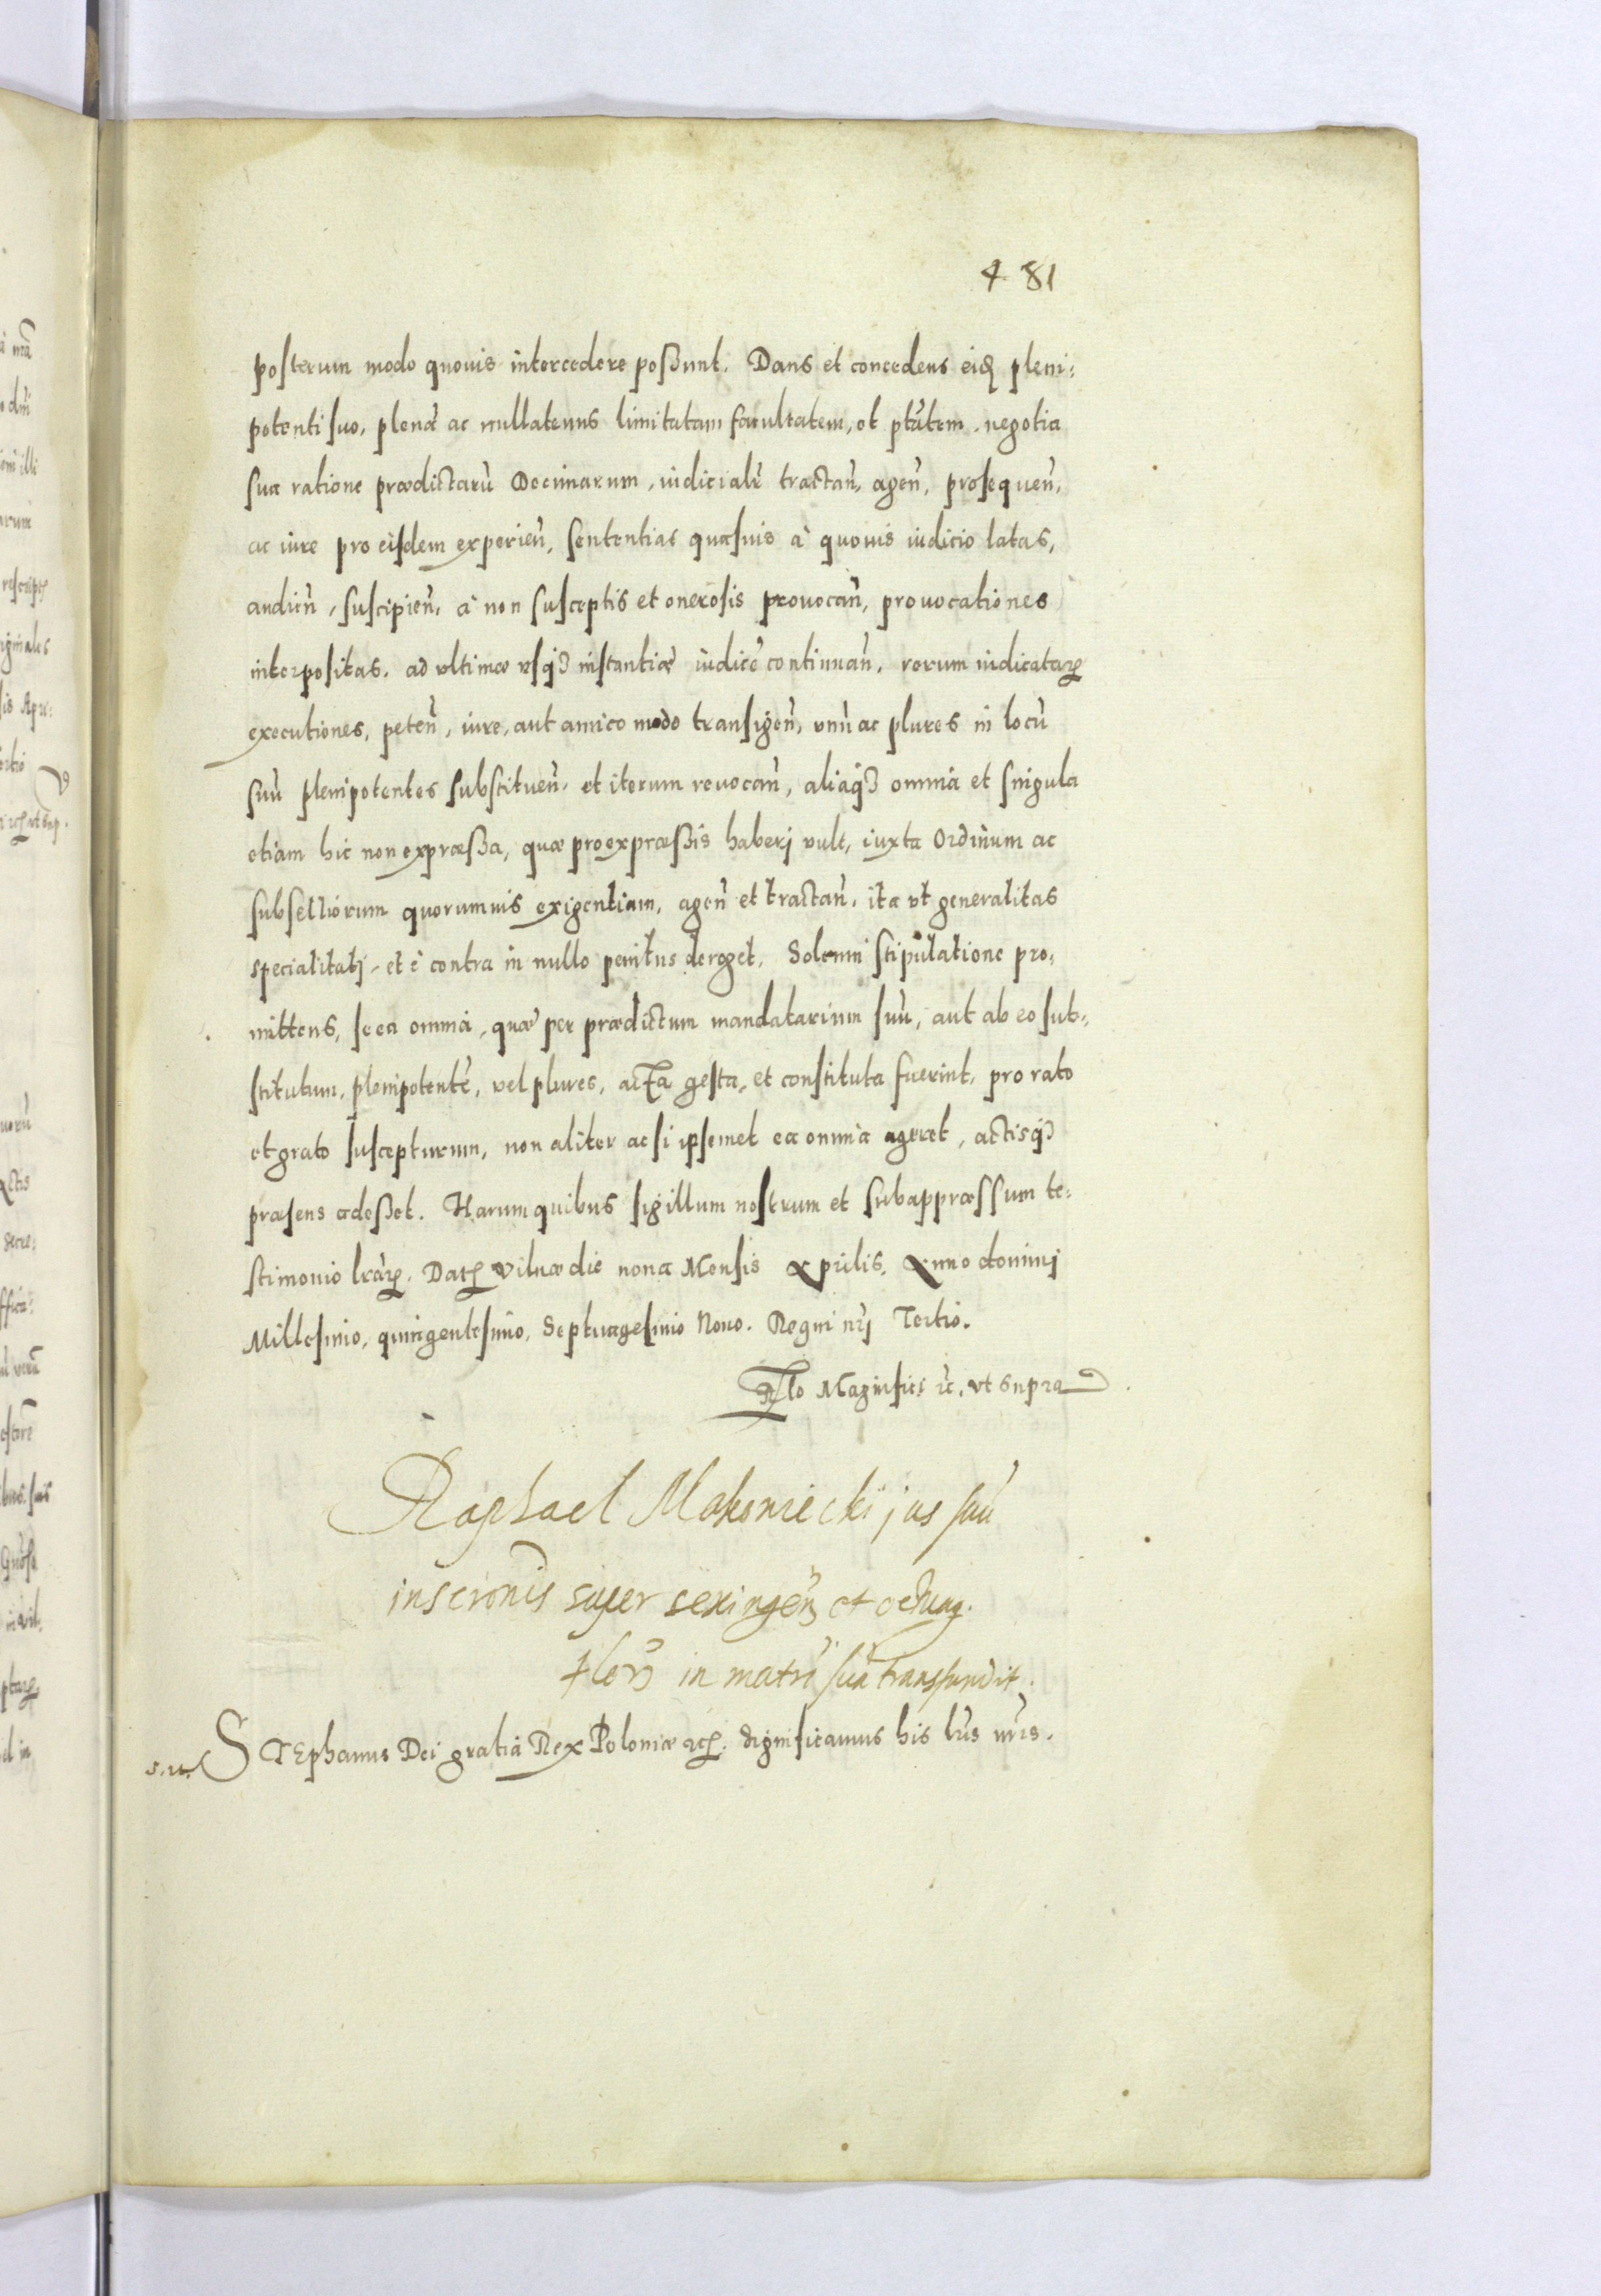 481
posterum modo quovis intercedere poßunt. Dans et concedens eid pleni:
potenti suo, plenã ac nullatenus limitatam facultatem, et ptãtem. negotia
sua ratione prædictarũ Decimarum, iudicialr̃ tractañ, ageñ, prosequeñ,
ac iure pro eisdem experieñ, sententias quasuis à quouis iudicio latas,
audieñ, suscipieñ, à non susceptis et onerosis prouocañ, prouocationes
interpositas, ad vltimæ vsq instantiæ iudicẽ continuañ, rerum iudicatarꝝ
executiones, peteñ, iure, aut amico modo transigeñ, vnũ ac plures in locũ
suũ plenipotentes substitueñ, et iterum reuocañ, aliaq omnia et singula
etiam hic non expræßa, quæ pro expræßis haberj vult, iuxta Ordinum ac
subselliorum quorumuis exigentiam, ageñ et tractañ, ita vt generalitas
specialitatj, et è contra in nullo penitus deroget. Solemni stipulatione pro,
mittens, se ea omnia, quæ per prædictum mandatarium suũ, aut ab eo sub,
stitutum, plenipotentẽ, vel plures, acta gesta, et constituta fuerint, pro rato
et grato suscepturum, non aliter ac si ipsemet ea omnia ageret, actisq
præsens adeßet. Harum quibus sigillum nostrum et subappræssum te:
stimonio lrãrꝝ. Datꝝ Vilnæ die nona Mensis Aprilis, Anno dominj
Millesimo, quingentesimo, Septuagesimo Nono. Regni nrj̃ Tertio.
Rlo Magnifici rc̃, vt supra
Raphael Makowiecki jus suũ
inscronis super sexingen et octuag.
floꝝ in matrẽ suã transfundit.
s.u. STEphanus Dei gratia Rex Poloniæ rcꝝ. Significamus his lr̃is nr̃is.